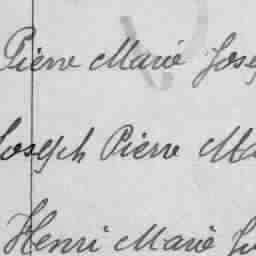 Pierre Marie Jose
Joseph Pierre Ma
Henri Marie